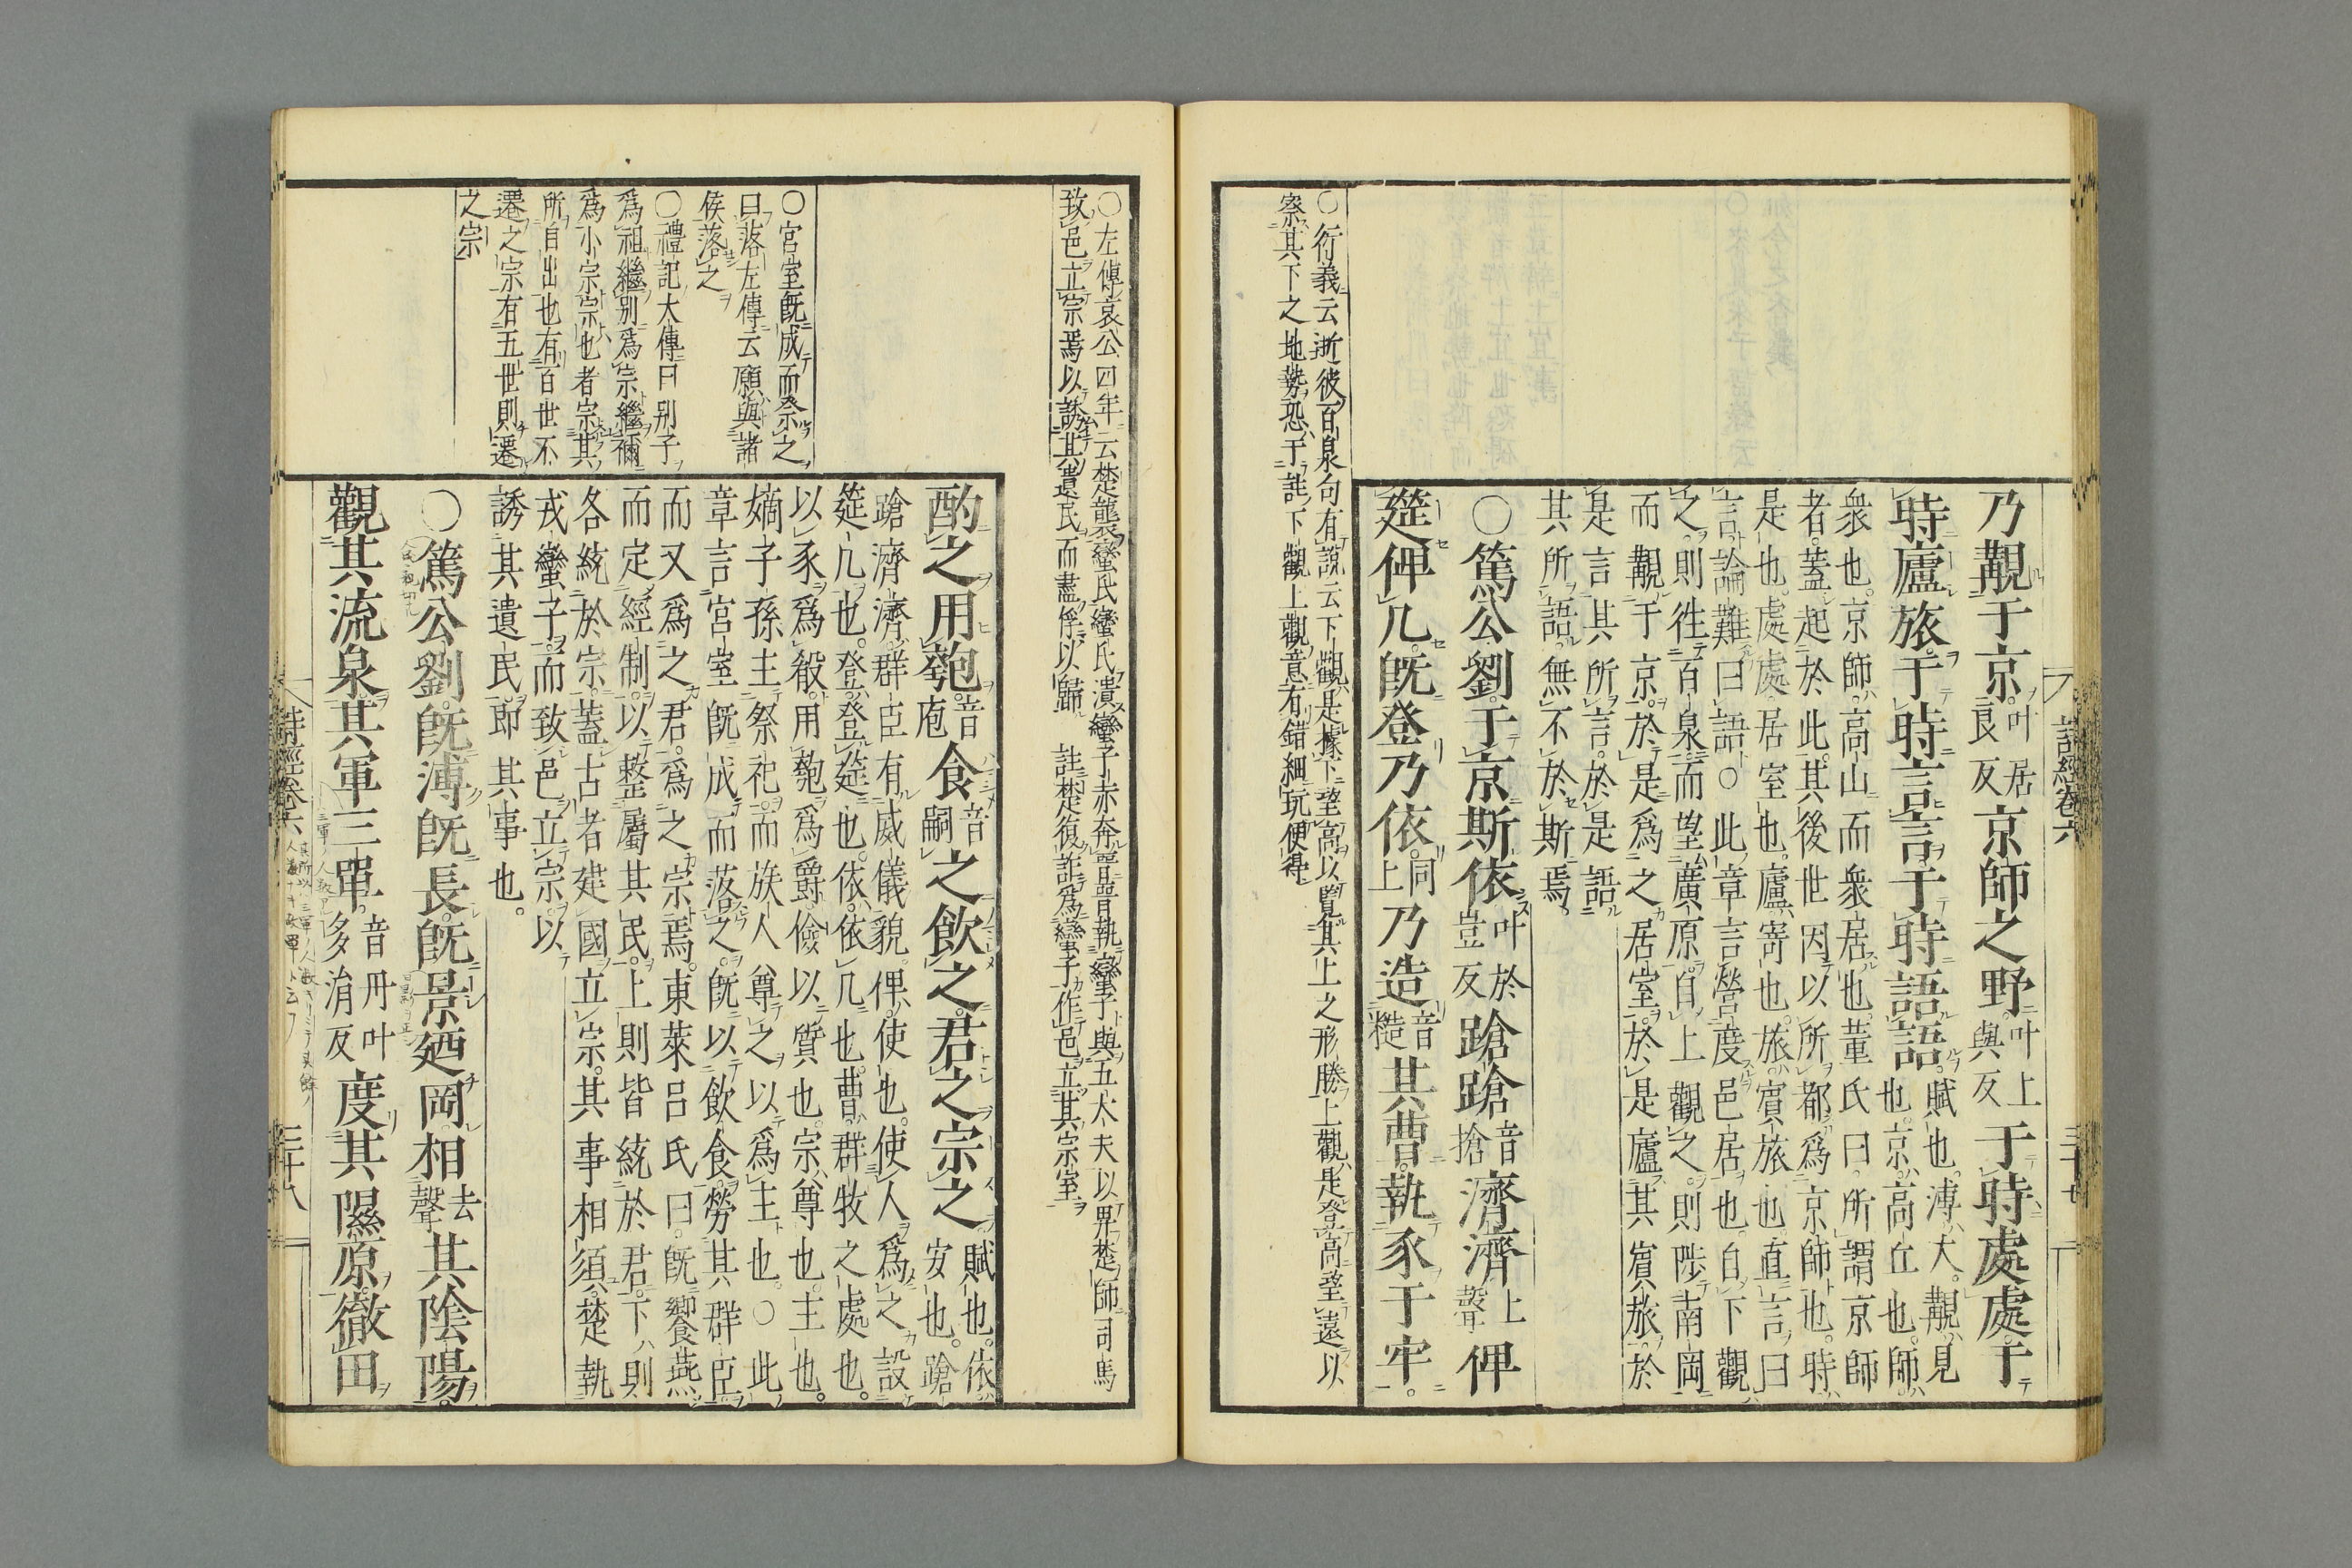 詩經卷六
三十七
乃覯于京叶居良反京師之野叶上與反于時處處于
時廬旅于時言言于時語語賦也溥大覯見
也京高丘也師
衆也京師高山而衆居也董氏曰所謂京師
者蓋起於此其後世因以所都爲京師也時
是也處處居室也廬寄也旅賓旅也直言曰
言論難曰語○此章言營度邑居也自下觀
之則往百泉而望廣原自上觀之則陟南岡
而覯于京於是爲之居室於是廬其賓旅於
是言其所言於是語
其所語無不於斯焉
○篤公劉于京斯依叶於豈反蹌蹌音搶濟濟上聲俾
筵俾几既登乃依同上乃造音糙其曹執豕于牢
○衍義云逝彼百泉句有說云下觀是據下望高以覽其上之形勝上觀是登高望遠以
察其下之地勢恐于註下觀上觀意有錯細玩便得
○左傳哀公四年云楚襲蠻氏蠻氏潰蠻子赤奔晉晉執蠻子與五大夫以畀楚師司馬
致邑立宗焉以誘其遺民而盡俘以歸 註楚復詐爲蠻子作邑立其宗室
○宮室既成而祭之
曰落左傳云願與諸
侯落之
○禮記大傳曰別子
爲祖繼別爲宗繼禰
爲小宗宗也者宗其
所自出也有百世不
遷之宗有五世則遷
之宗
酌之用匏音庖食音嗣之飲之君之宗之賦也依
安也蹌
蹌濟濟群臣有威儀貌俾使也使人爲之設
筵几也登登筵也依依几也曹群牧之處也
以豕爲殽用匏爲爵儉以質也宗尊也主也
嫡子孫主祭祀而族人尊之以爲主也○此
章言宮室既成而落之既以飲食勞其群臣
而又爲之君爲之宗焉東萊呂氏曰既饗燕
而定經制以整屬其民上則皆統於君下則
各統於宗蓋古者建國立宗其事相須楚執
戎蠻子而致邑立宗以
誘其遺民即其事也
○篤公劉既溥既長既景廼岡相去聲其陰陽
觀其流泉其軍三單音丹叶多涓反度其隰原徹田
詩經卷六
三十八